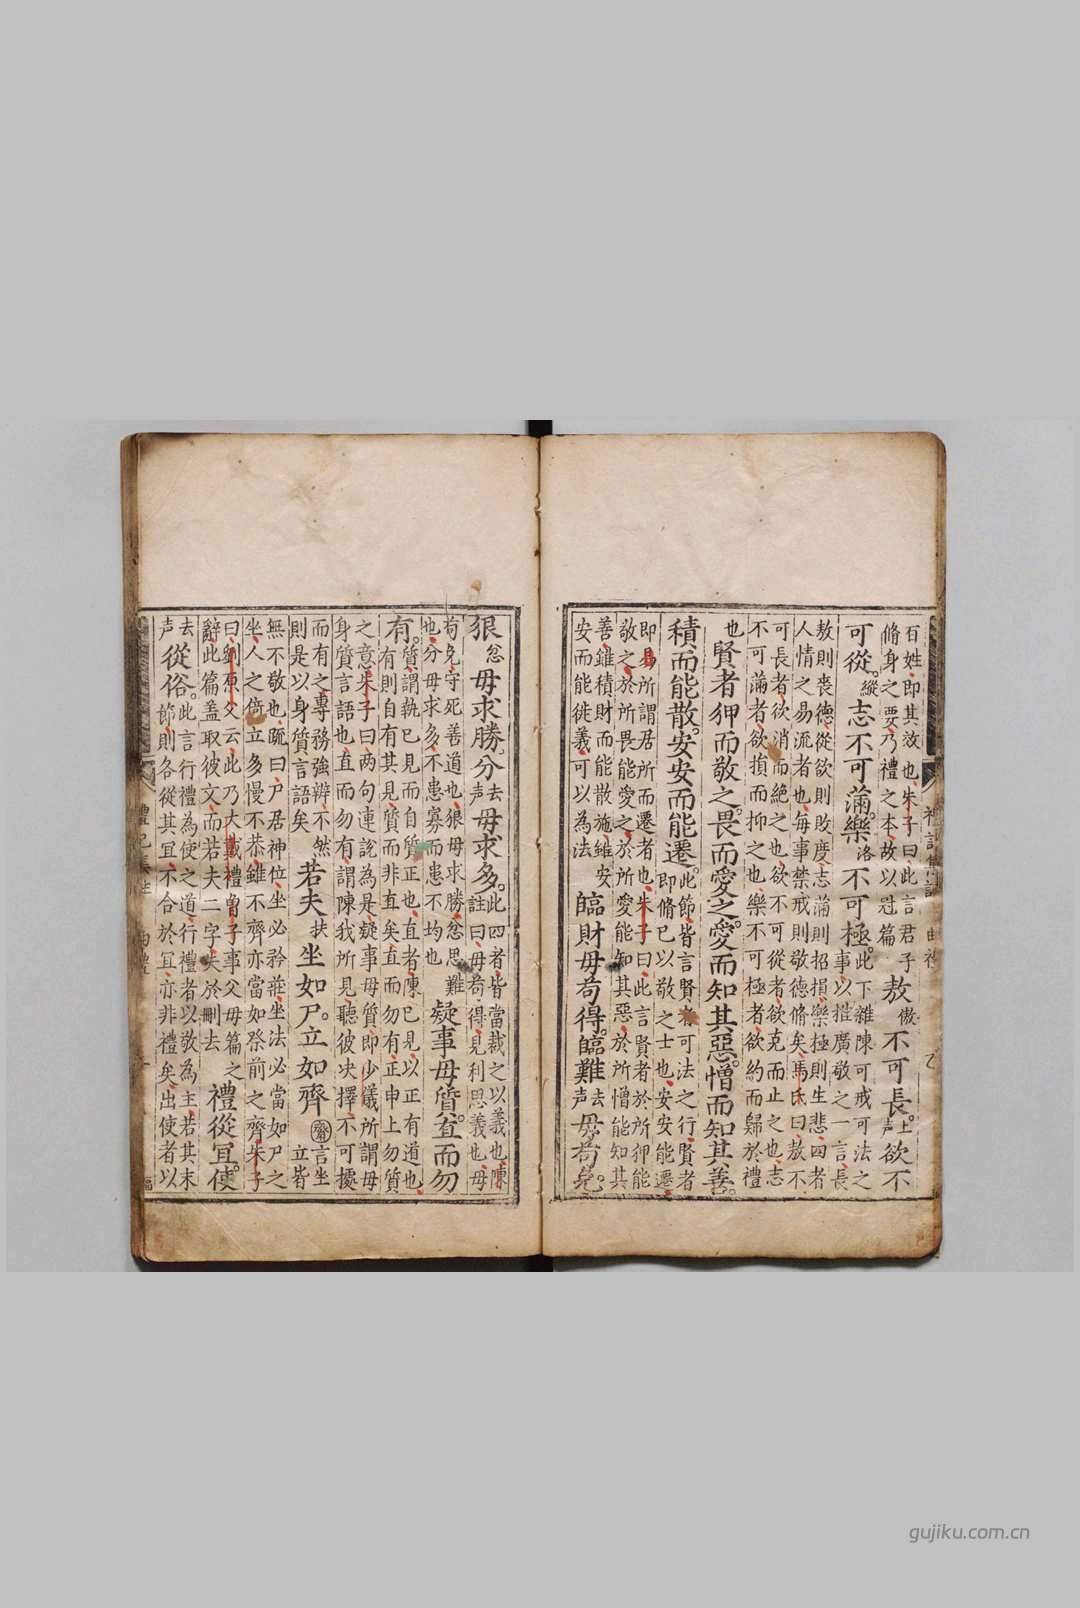 百姓即其效也朱子曰此言君子
脩身之要乃禮之本故以冠篇
敖傲不可長上声欲不
可從縱志不可滿樂洛不可極此下雜陳可戒可法之
事以推廣敬之一言長
敖則喪德從欲則敗度志滿則招損樂極則生悲四者
人情之易流者也每事禁戒則敬德脩矣馬氏曰敖不
可長者欲消而絶之也欲不可從者欲克而止之也志
不可滿者欲損而抑之也樂不可極者欲約而歸於禮
也
賢者狎而敬之畏而愛之愛而知其惡憎而知其善
積而能散安安而能遷此節皆言賢者可法之行賢者
即脩已以敬之士也安安能遷
即易所謂居所而遷者也朱子曰此言賢者於所狎能
敬之於所畏能愛之於所愛能知其惡於所憎能知其
善雖積財而能散施雖安
安而能徙義可以為法
臨財毋苟得臨難去声毋苟免
狠忿毋求勝分去声毋求多此四者皆當裁之以義也陳
註曰毋苟得見利思義也毋
苟免守死善道也狠毋求勝忿思難
也分毋求多不患寡而患不均也
疑事毋質直而勿
有質謂執已見而自質正也直者陳已見以正有道也
有則自有其見質而非直矣直而勿有申上勿質
之意朱子曰两句連說為是疑事毋質即少儀所謂毋
身質言語也直而勿有謂陳我所見聽彼决擇不可據
而有之專務強辨不然
則是以身質言語矣
若夫扶坐如尸立如齊齋言坐
立皆
無不敬也疏曰尸居神位坐必矜莊坐法必當如尸之
坐人之倚立多慢不恭雖不齊亦當如祭前之齊朱子
曰劉原父云此乃大戴禮曾子事父母篇之
辭此篇盖取彼文而若夫二字失於刪去
禮從宜使
去声從俗此言行禮為使之道行禮者以敬為主若其末
節則各從其宜不合於宜亦非禮矣出使者以